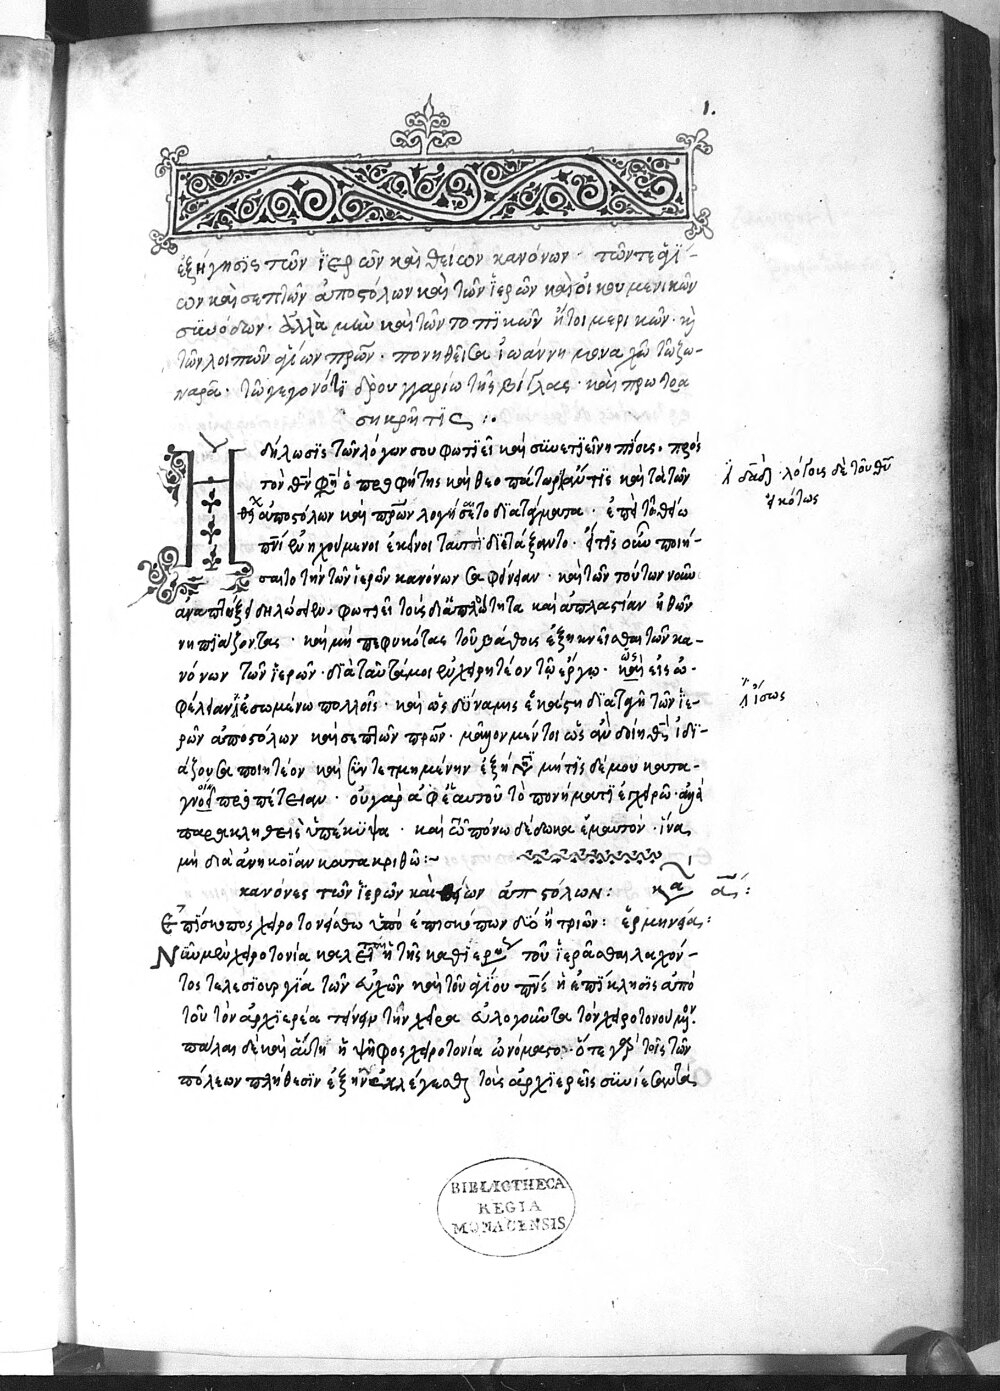 1.
ἐξήγησις τῶν ἱερῶν καὶ θείων κανόνων · τῶν τε ἁγί-
ων καὶ σεπτῶν ἀποστόλων καὶ τῶν ἱερῶν καὶ οἰκουμενικῶν
συνόδων · ἀλλὰ μὴν καὶ τῶν τοπικῶν ἤτοι μερικῶν · κὶ
τῶν λοιπῶν ἁγίων πρων · πονηθεῖσα ἰωάννη μοναχῶ τῶ ζω-
ναρᾶ · τῶ γεγονότι δρουγγαρίω τῆς βίγλας · καὶ πρωτοα
σηκρῆτις :·
Ἡ δήλωσις τῶν λόγων σου φωτιεῖ καὶ συνετιεῖ νηπίους · πρὸς
τὸν θν φησὶ ὁ προφήτης καὶ θεοπάτωρ καὶ τὰ τῶν
ἀποστόλων καὶ πρων λογίσαιτο διατάγματα · ἐπεὶ τῶ θείω
πνι ἐνηχούμενοι ἐκεῖνοι ταυτὶ διετάξαντο · εἴ τις οὖν ποιή-
σαιτο τὴν τῶν ἱερῶν κανόνων σαφήνειαν · καὶ τῶν τούτων νοῦν
ἀναπτύξει δηλώσειεν · φωτιεῖ τοὺς δι ἁπλότητα καὶ ἀπλαστίαν ἠθῶν
νηπιάζοντας · καὶ μὴ πεφυκότας τοῦ βάθους ἐξικνεῖσθαι τῶν κα-
νόνων τῶν ἱερῶν · διὰ ταῦτά μοι ἐγχειρητέον τῶ ἔργω · καὶ εἰς ὠ-
φέλειαν ἐσομένω πολλοῖς · καὶ ὡς δύναμις ἑκάστη διαταγῆ τῶν ἱε-
ρῶν ἀποστόλων καὶ σεπτῶν πρων · μᾶλλον μέντοι ὡς ἂν δοίη θς ἰδι-
άζουσα ποιητέον καὶ συντετμημένην ἐξήγησιν μή τις δέ μου κατα-
γνοίη προπέτειαν · οὐ γὰρ ἀφ ἑαυτοῦ τὸ πονήματι ἐπιχειρῶ · ἀλλὰ
παρακληθεὶς ὑπέκυψα · καὶ τῶ πόνω δέδωκα ἐμαυτόν · ἵνα
μὴ δι ἀνηκοΐαν κατακριθῶ :~
κανόνες τῶν ἱερῶν καὶ θείων ἀποστόλων : κα αος :
Ἐπίσκοπος χειροτονείσθω ὑπὸ ἐπισκόπων δύο ἢ τριῶν : ἑρμηνεία :
Νῦν μὲν χειροτονία καλεῖται ἡ τῆς καθιερώσεως τοῦ ἱερᾶσθαι λαχόν-
τος τελεσιουργία τῶν εὐχῶν καὶ τοῦ ἁγίου πνς ἡ ἐπίκλησις ἀπὸ
τοῦ τὸν ἀρχιερέα τείνειν τὴν χεῖρα εὐλογοῦντα τὸν χειροτονούμενον ·
πάλαι δὲ καὶ αὕτη ἡ ψῆφος χειροτονία ὠνόμαστο · ὅτε γὰρ τοῖς τῶν
πόλεων πλήθεσιν ἐξῆν ἐκλέγεσθαι τοὺς ἀρχιερεῖς συνίεσαν τὰ
λόγοις δὲ τοῦ θυ
εἰκότως
ἴσως
BIBLIOTHECA
REGIA
MONACENSIS